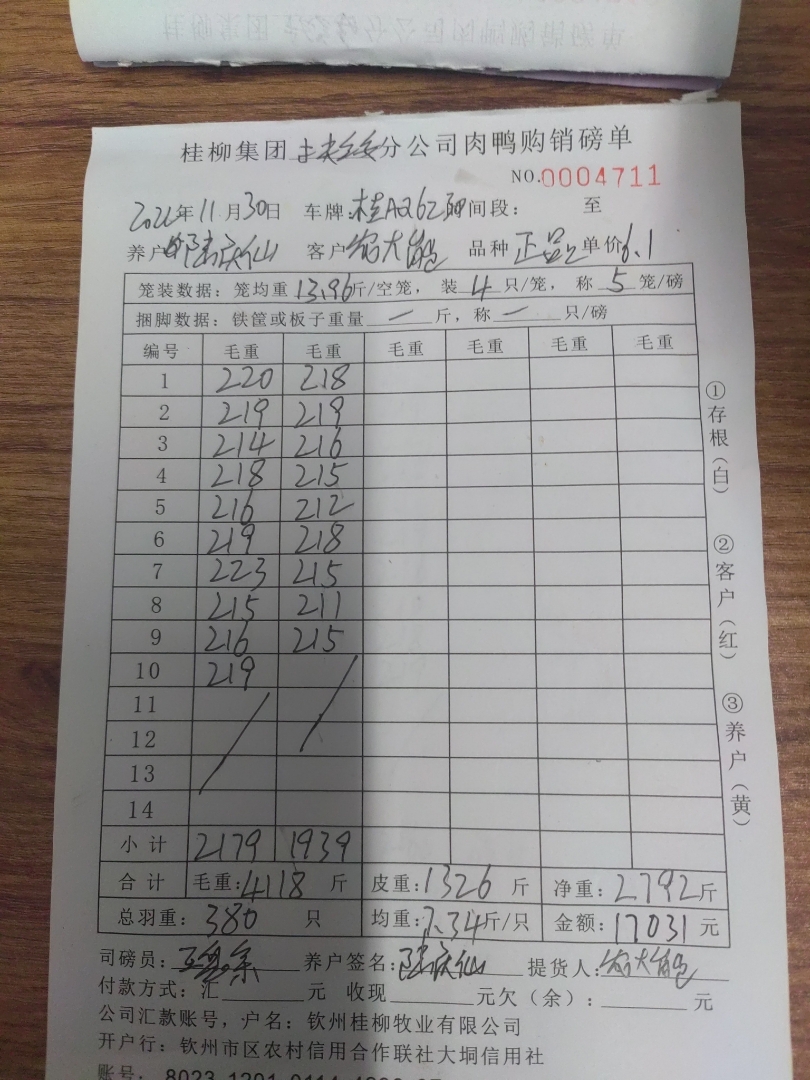 桂柳集团 分公司肉鸭购销磅单
NO.0004711
2022年11月30日 车牌:桂A 间段: 至
养户 陆庆仙 客户 品种 正品 单价6.1
笼装数据:笼均重13.96斤/空笼,装4只/笼,称5笼/磅
捆脚数据:铁筐或板子重量—斤,称—只/磅
编号 毛重 毛重 毛重 毛重 毛重 毛重
1 220 218
2 219 219
3 214 216
4 218 215
5 216 212
6 219 218
7 223 215
8 215 211
9 216 215
10 219
11
12
13
14
小计 2179 1939
合计 毛重:4118斤 皮重:1326斤 净重:2792斤
总羽重:380只 均重:7.34斤/只 金额:17031元
司磅员: 养户签名:陆庆仙 提货人:
付款方式:汇 元 收现 元欠(余): 元
公司汇款账号,户名:钦州桂柳牧业有限公司
开户行:钦州市区农村信用合作联社大垌信用社
账号:8023 1201 0114
①存根(白)
②客户(红)
③养户(黄)